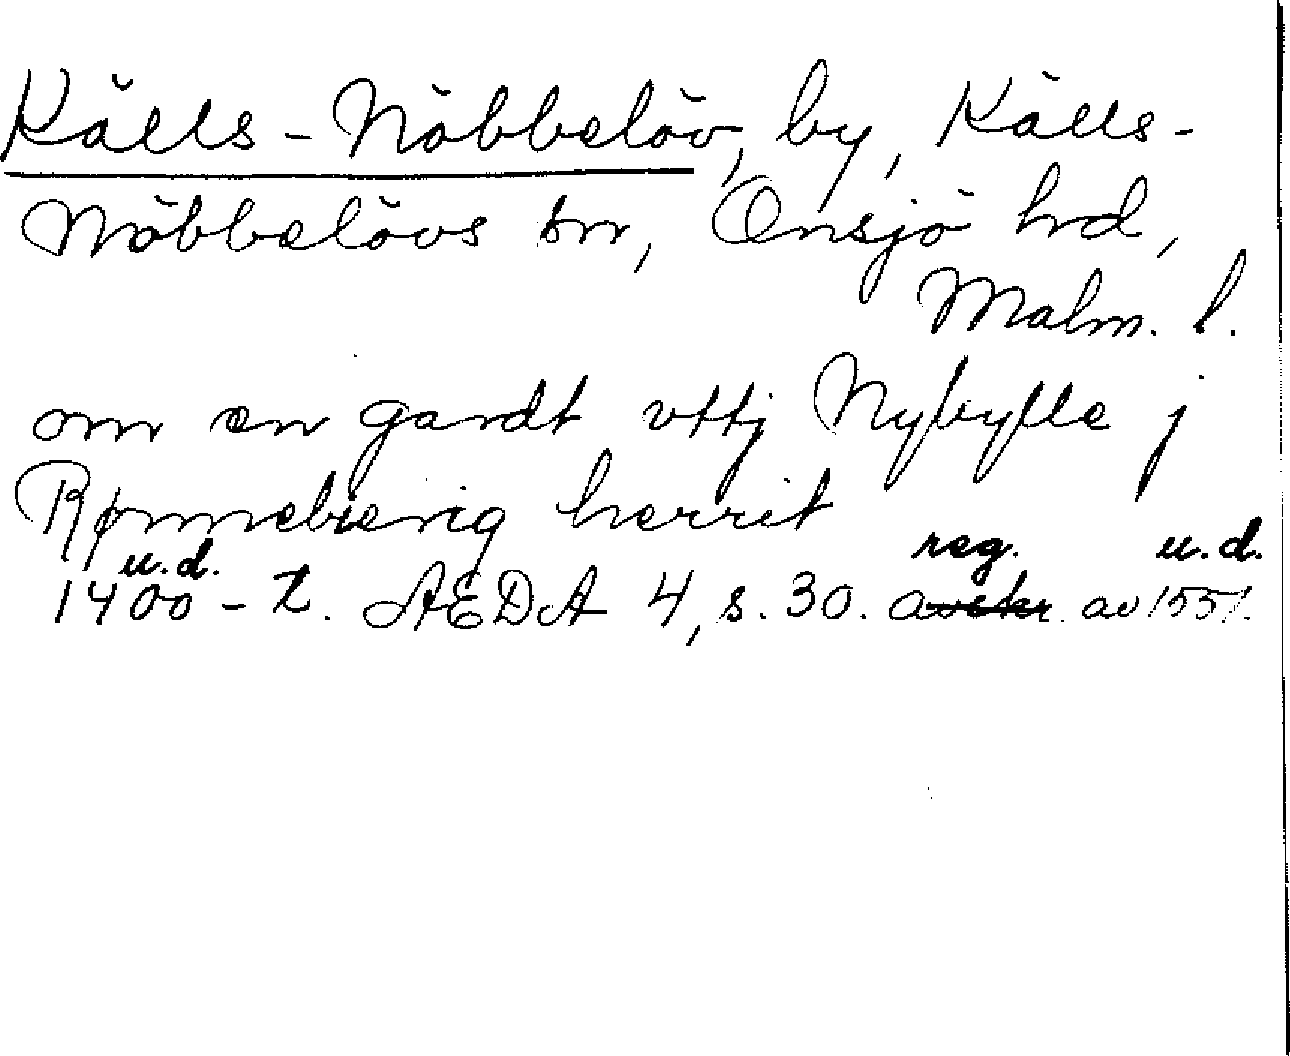 Källs-Nöbbelöv, by, Källs-
Nöbbelövs sn, Onsjö hrd,
Malm. l.
om en gardt vttj Nybylle j
Rønnebierig herrit
u.d. reg. u.d.
1400-t. ÆDA 4, s. 30. avskr. av 1551.